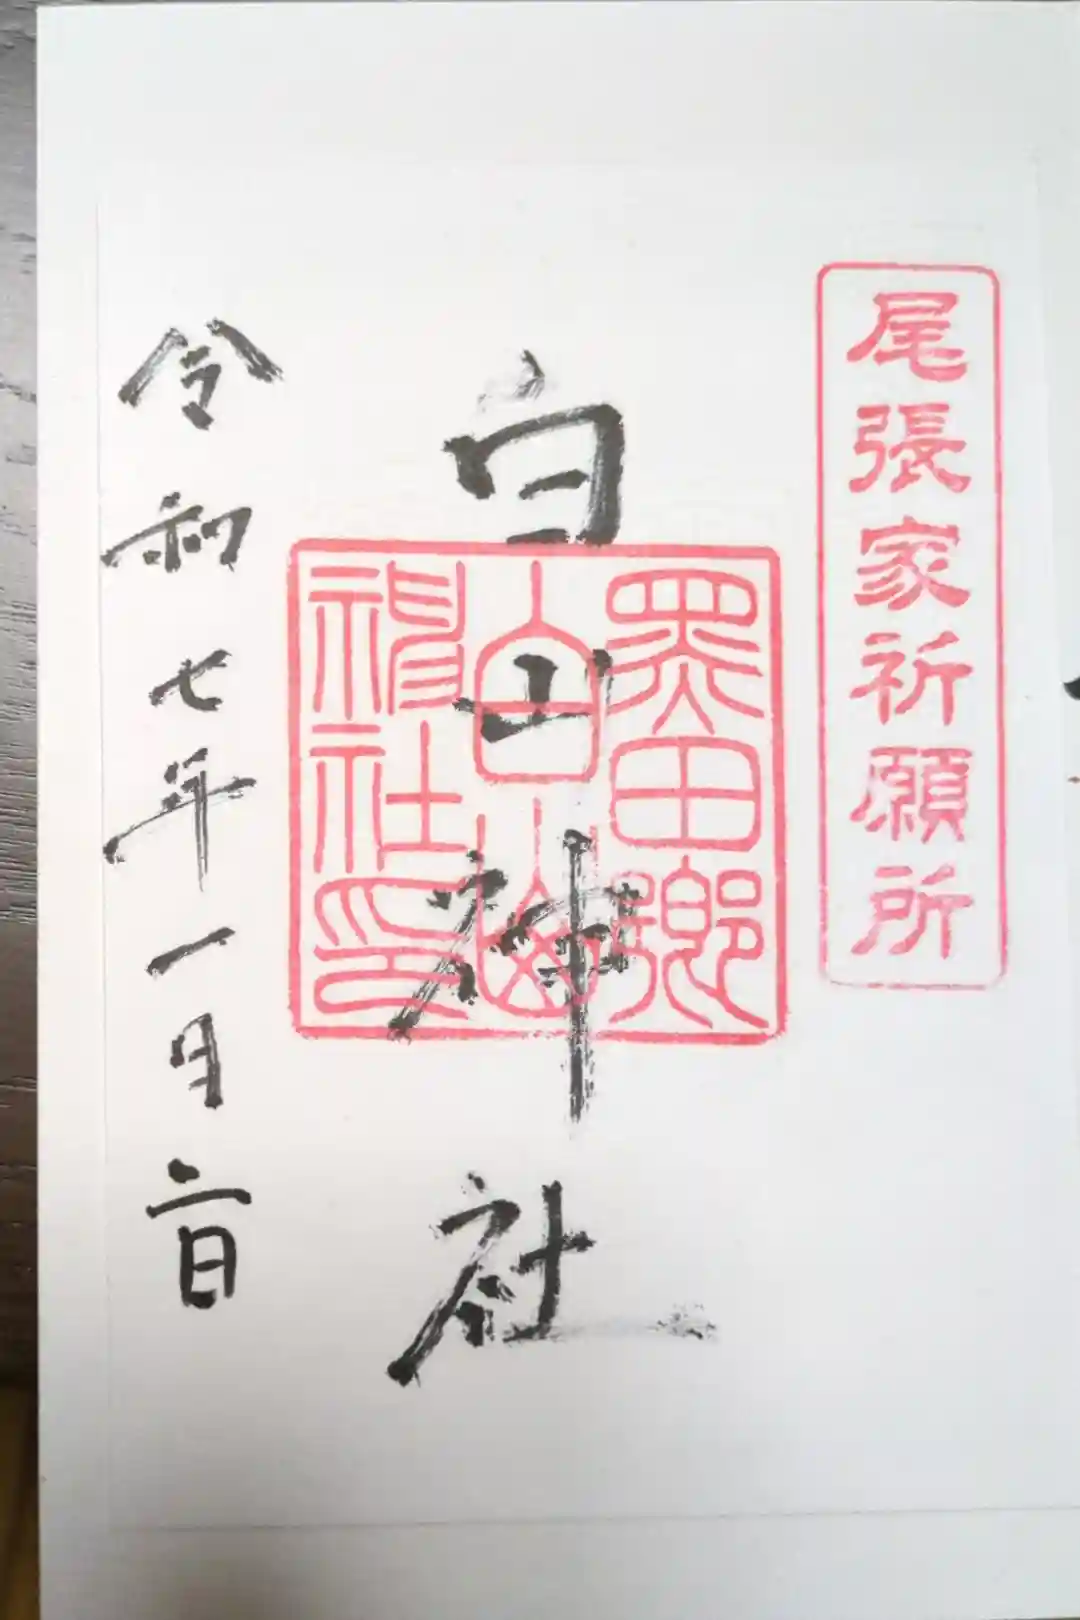 尾張家祈願所
白山神社
黑田鄉
白山
神社印
令和七年一月二日